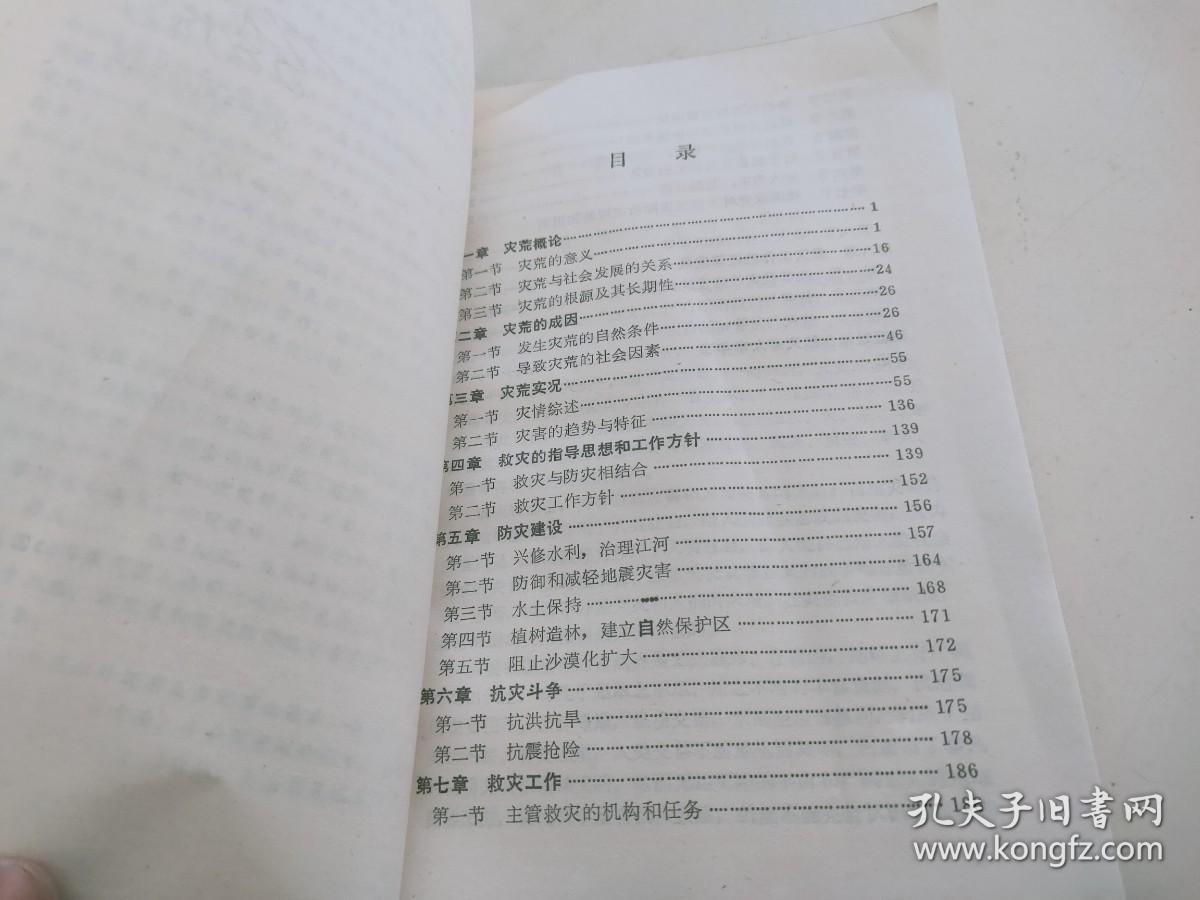 目 录
一章 灾荒概论……1
第一节 灾荒的意义……1
第二节 灾荒与社会发展的关系……16
第三节 灾荒的根源及其长期性……24
二章 灾荒的成因……26
第一节 发生灾荒的自然条件……26
第二节 导致灾荒的社会因素……46
第三章 灾荒实况……55
第一节 灾情综述……55
第二节 灾害的趋势与特征……136
第四章 救灾的指导思想和工作方针……139
第一节 救灾与防灾相结合……139
第二节 救灾工作方针……152
第五章 防灾建设……156
第一节 兴修水利，治理江河……157
第二节 防御和减轻地震灾害……164
第三节 水土保持……168
第四节 植树造林，建立自然保护区……171
第五节 阻止沙漠化扩大……172
第六章 抗灾斗争……175
第一节 抗洪抗旱……175
第二节 抗震抢险……178
第七章 救灾工作……186
第一节 主管救灾的机构和任务……
孔夫子旧書网
www.kongfz.com